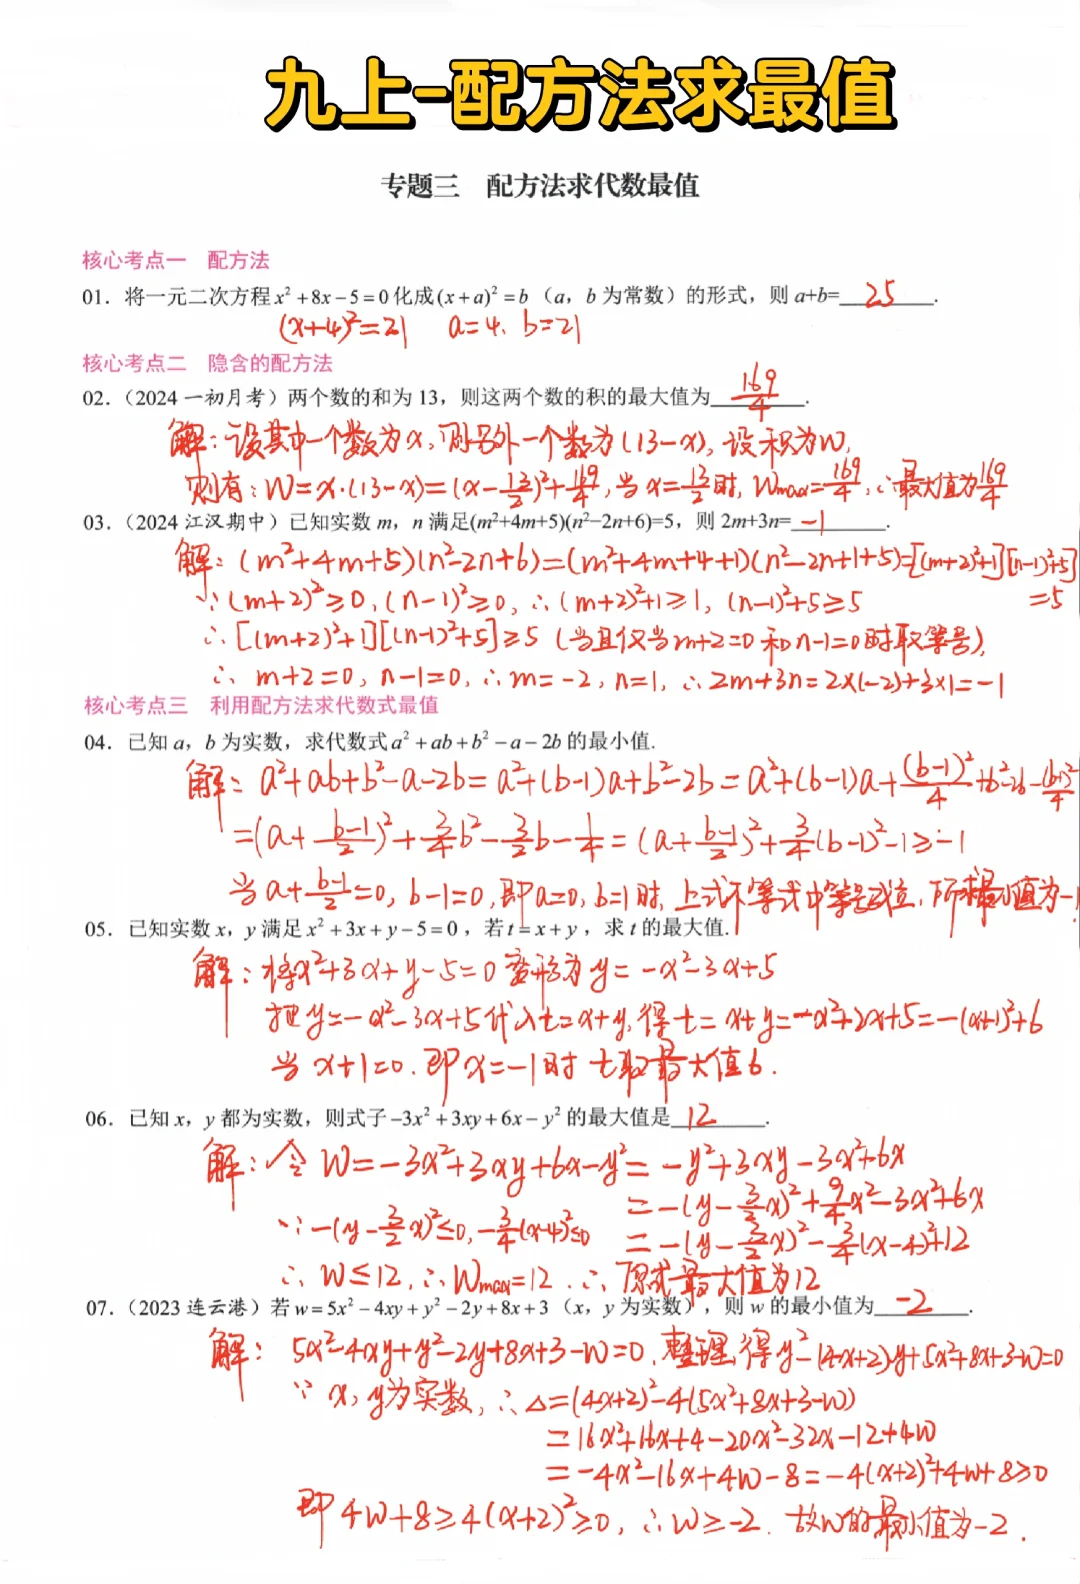 九上-配方法求最值
专题三 配方法求代数最值
核心考点一 配方法
01. 将一元二次方程x²+8x-5=0化成(x+a)²=b（a，b为常数）的形式，则a+b=25.
(x+4)²=21 a=4, b=21
核心考点二 隐含的配方法
02.（2024一初月考）两个数的和为13，则这两个数的积的最大值为169/4.
解：设其中一个数为x，则另外一个数为(13-x)，设积为W，
则有：W=x·(13-x)=(x-13/2)²+169/4，当x=13/2时，Wmax=169/4，∴最大值为169/4
03.（2024江汉期中）已知实数m，n满足(m²+4m+5)(n²-2n+6)=5，则2m+3n=-1.
解：(m²+4m+5)(n²-2n+6)=(m²+4m+4+1)(n²-2n+1+5)=[(m+2)²+1][(n-1)²+5]
∵(m+2)²≥0,(n-1)²≥0,∴(m+2)²+1≥1,(n-1)²+5≥5 =5
∴[(m+2)²+1][(n-1)²+5]≥5（当且仅当m+2=0和n-1=0时取等号),
∴ m+2=0, n-1=0, ∴m=-2, n=1, ∴2m+3n=2×(-2)+3×1=-1
核心考点三 利用配方法求代数式最值
04. 已知a，b为实数，求代数式a²+ab+b²-a-2b的最小值.
解：a²+ab+b²-a-2b=a²+(b-1)a+b²-2b=a²+(b-1)a+(b-1)²/4+b²-2b-(b-1)²/4
=(a+(b-1)/2)²+3/4b²-3/2b-1/4=(a+(b-1)/2)²+3/4(b-1)²-1≥-1
当a+(b-1)/2=0, b-1=0, 即a=0, b=1时, 上式不等式中等号成立, 所求最小值为-1
05. 已知实数x，y满足x²+3x+y-5=0，若t=x+y，求t的最大值.
解：将x²+3x+y-5=0变形为y=-x²-3x+5
把y=-x²-3x+5代入t=x+y,得t=x+y=-x²+2x+5=-(x+1)²+6
当x+1=0.即x=-1时 t取最大值6.
06. 已知x，y都为实数，则式子-3x²+3xy+6x-y²的最大值是12.
解：令W=-3x²+3xy+6x-y²=-y²+3xy-3x²+6x
=-(y-3/2x)²+9/4x²-3x²+6x
∵-(y-3/2x)²≤0,-3/4(x-4)²≤0 =-(y-3/2x)²-3/4(x-4)²+12
∴W≤12,∴Wmax=12.∴原式最大值为12
07.（2023连云港）若w=5x²-4xy+y²-2y+8x+3（x，y为实数），则w的最小值为-2.
解：5x²-4xy+y²-2y+8x+3-W=0,整理得y²-(4x+2)y+5x²+8x+3-W=0
∵x,y为实数,∴△=(4x+2)²-4(5x²+8x+3-W)
=16x²+16x+4-20x²-32x-12+4W
=-4x²-16x+4W-8=-4(x+2)²+4W+8≥0
即4W+8≥4(x+2)²≥0,∴W≥-2.故W的最小值为-2.